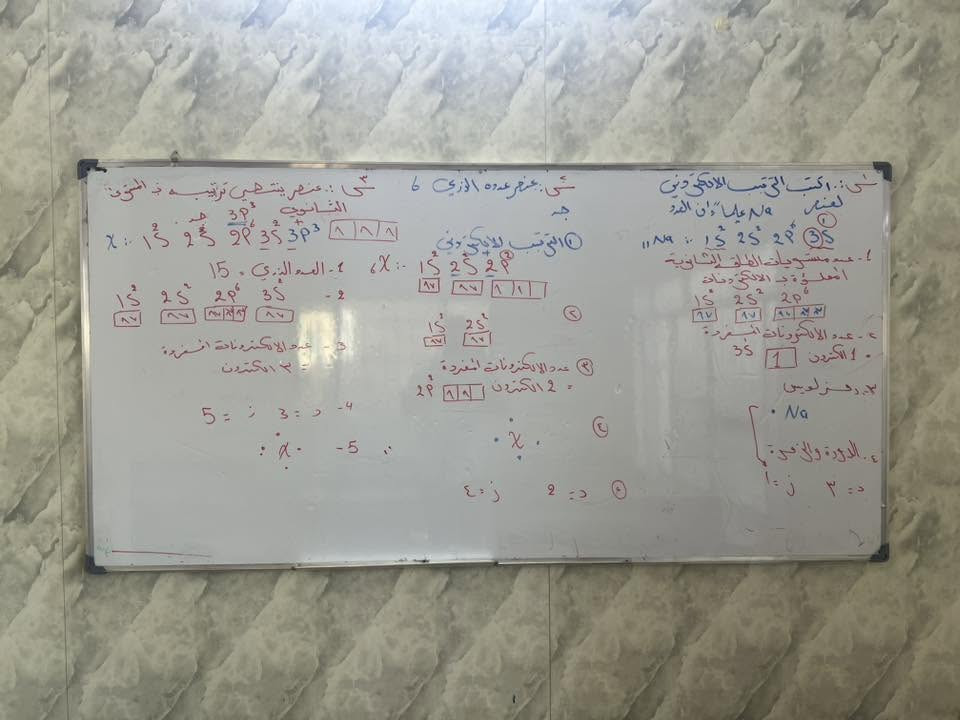 س١: اكتب الترتيب الالكتروني
لعنصر Na علماً ان العدد
₁₁Na :. 1S² 2S² 2P⁶ 3S¹
1- عدد مستويات الطاقة الثانوية
المملوءة بـ الالكترونات
1S² 2S² 2P⁶
٢- عدد الالكترونات المنفردة
1 الكترون 3S 1
٣. رمز لويس
Na
٤. الدورة والزمرة
د = ٣ ز = ١
س٢: عنصر عدده الذري 6
جد
① الترتيب الالكتروني
₆X :. 1S² 2S² 2P²
②
1S² 2S²
③ عدد الالكترونات المنفردة
= 2 الكترون 2P²
④
X
⑤ د = 2 ز = ٤
س٣: عنصر ينتهي ترتيبه بـ
الثانوي 3P³ جد
X :. 1S² 2S² 2P⁶ 3S² 3P³
1- العدد الذري = 15
2-
1S² 2S² 2P⁶ 3S²
3- عدد الالكترونات المنفردة
= ٣ الكترون
4- د = 3 ز = 5
5- X